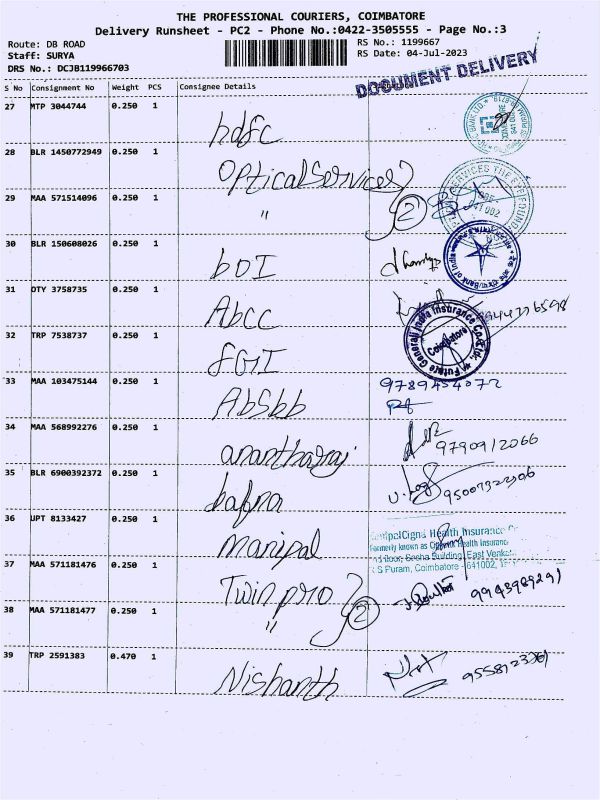 THE PROFESSIONAL COURIERS, COIMBATORE
Delivery Runsheet - PC2 - Phone No.:0422-3505555 - Page No.:3
Route: DB ROAD
Staff: SURYA
DRS No.: DCJB119966703
RS No.: 1199667
RS Date: 04-Jul-2023
DOCUMENT DELIVERY
S No Consignment No Weight PCS Consignee Details
27 MTP 3044744 0.250 1
hdfc
28 BLR 1450772949 0.250 1
Optical Services
29 MAA 571514096 0.250 1
" 2
30 BLR 150608026 0.250 1
BOI
31 OTY 3758735 0.250 1
Abcc
32 TRP 7538737 0.250 1
FGI
Future Generali India Insurance Co. Ltd.
Coimbatore
33 MAA 103475144 0.250 1
Absbb
9789454072
34 MAA 568992276 0.250 1
anantharaj
9790912066
35 BLR 6900392372 0.250 1
bafna
36 UPT 8133427 0.250 1
Manipal
Health Insurance
Formerly known as Health Insurance
Building, East Venkat
R S Puram, Coimbatore - 641002
37 MAA 571181476 0.250 1
Twin pro
38 MAA 571181477 0.250 1
" 2
39 TRP 2591383 0.470 1
Nishanth